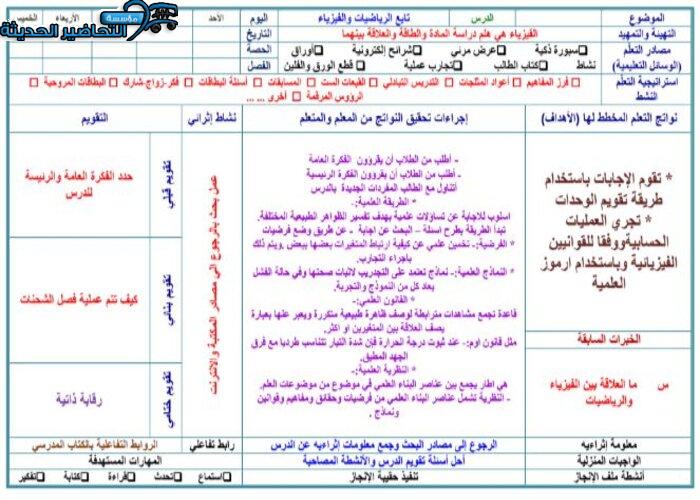 مؤسسة
التحاضير الحديثة
الموضوع
الدرس
تابع الرياضيات والفيزياء
اليوم
الأحد
الأربعاء
الخميس
التهيئة والتمهيد
الفيزياء هي هلم دراسة المادة والطاقة والعلاقة بينهما
التاريخ
مصادر التعلم
(الوسائل التعليمية)
سبورة ذكية
عرض مرئي
شرائح إلكترونية
أوراق
نشاط
كتاب الطالب
تجارب عملية
قطع الورق والفلين
الحصة
الفصل
استراتيجية التعلم
النشط
فرز المفاهيم
أعواد المثلجات
التدريس التبادلي
القبعات الست
المسابقات
أسئلة البطاقات
فكر-زواج-شارك
البطاقات المروحية
الرؤوس المرقمة
أخرى ... ...
نواتج التعلم المخطط لها (الأهداف)
إجراءات تحقيق النواتج من المعلم والمتعلم
نشاط إثرائي
التقويم
* تقوم الإجابات باستخدام
طريقة تقويم الوحدات
* تجري العمليات
الحسابيةووفقا للقوانيين
الفيزيائية وباستخدام ارموز
العلمية
الخبرات السابقة
س ما العلاقة بين الفيزياء
والرياضيات
- أطلب من الطلاب أن يقرؤون الفكرة العامة
- أطلب من الطلاب أن يقرؤون الفكرة الرئيسية
أتناول مع الطالب المفردات الجديدة بالدرس
* الطريقة العلمية:-
اسلوب للاجابة عن تساؤلات علمية بهدف تفسير الظواهر الطبيعية المختلفة.
تبدأ الطريقة بطرح اسئلة – البحث عن اجابة - عن طريق وضع فرضيات
* الفرضية:- تخمين علمي عن كيفية ارتباط المتغيرات بعضها ببعض .ويتم ذلك
باجراء التجارب.
* النماذج العلمية:- نماذج تعتمد على التجريب لاثبات صحتها وفي حالة الفشل
يعاد كل من النموذج والتجربة.
* القانون العلمي:-
قاعدة تجمع مشاهدات مترابطة لوصف ظاهرة طبيعية متكررة ويعبر عنها بعبارة
يصف العلاقة بين المتغيرين او اكثر.
مثل قانون اوم:- عند ثبوت درجة الحرارة فإن شدة التيار تتناسب طرديا مع فرق
الجهد المطبق.
* النظرية العلمية:-
هي اطار يجمع بين عناصر البناء العلمي في موضوع من موضوعات العلم.
- النظرية تشمل عناصر البناء العلمي من فرضيات وحقائق ومفاهيم وقوانين
ونماذج .
عمل بحث بالرجوع الي مصادر المكتبة والانترنت
تقويم قبلي
حدد الفكرة العامة والرئيسة
للدرس
تقويم بنائي
كيف تتم عملية فصل الشحنات
تقويم ختامي
رقابة ذاتية
معلومة إثرائيه
الرجوع إلى مصادر البحث وجمع معلومات إثراءيه عن الدرس
رابط تفاعلي
الروابط التفاعلية بالكتاب المدرسي
الواجبات المنزلية
أحل أسئلة تقويم الدرس والأنشطة المصاحبة
المهارات المستهدفة
أنشطة ملف الإنجاز
تنفيذ حقيبة الإنجاز
استماع
تحدث
قراءة
كتابة
تفكير